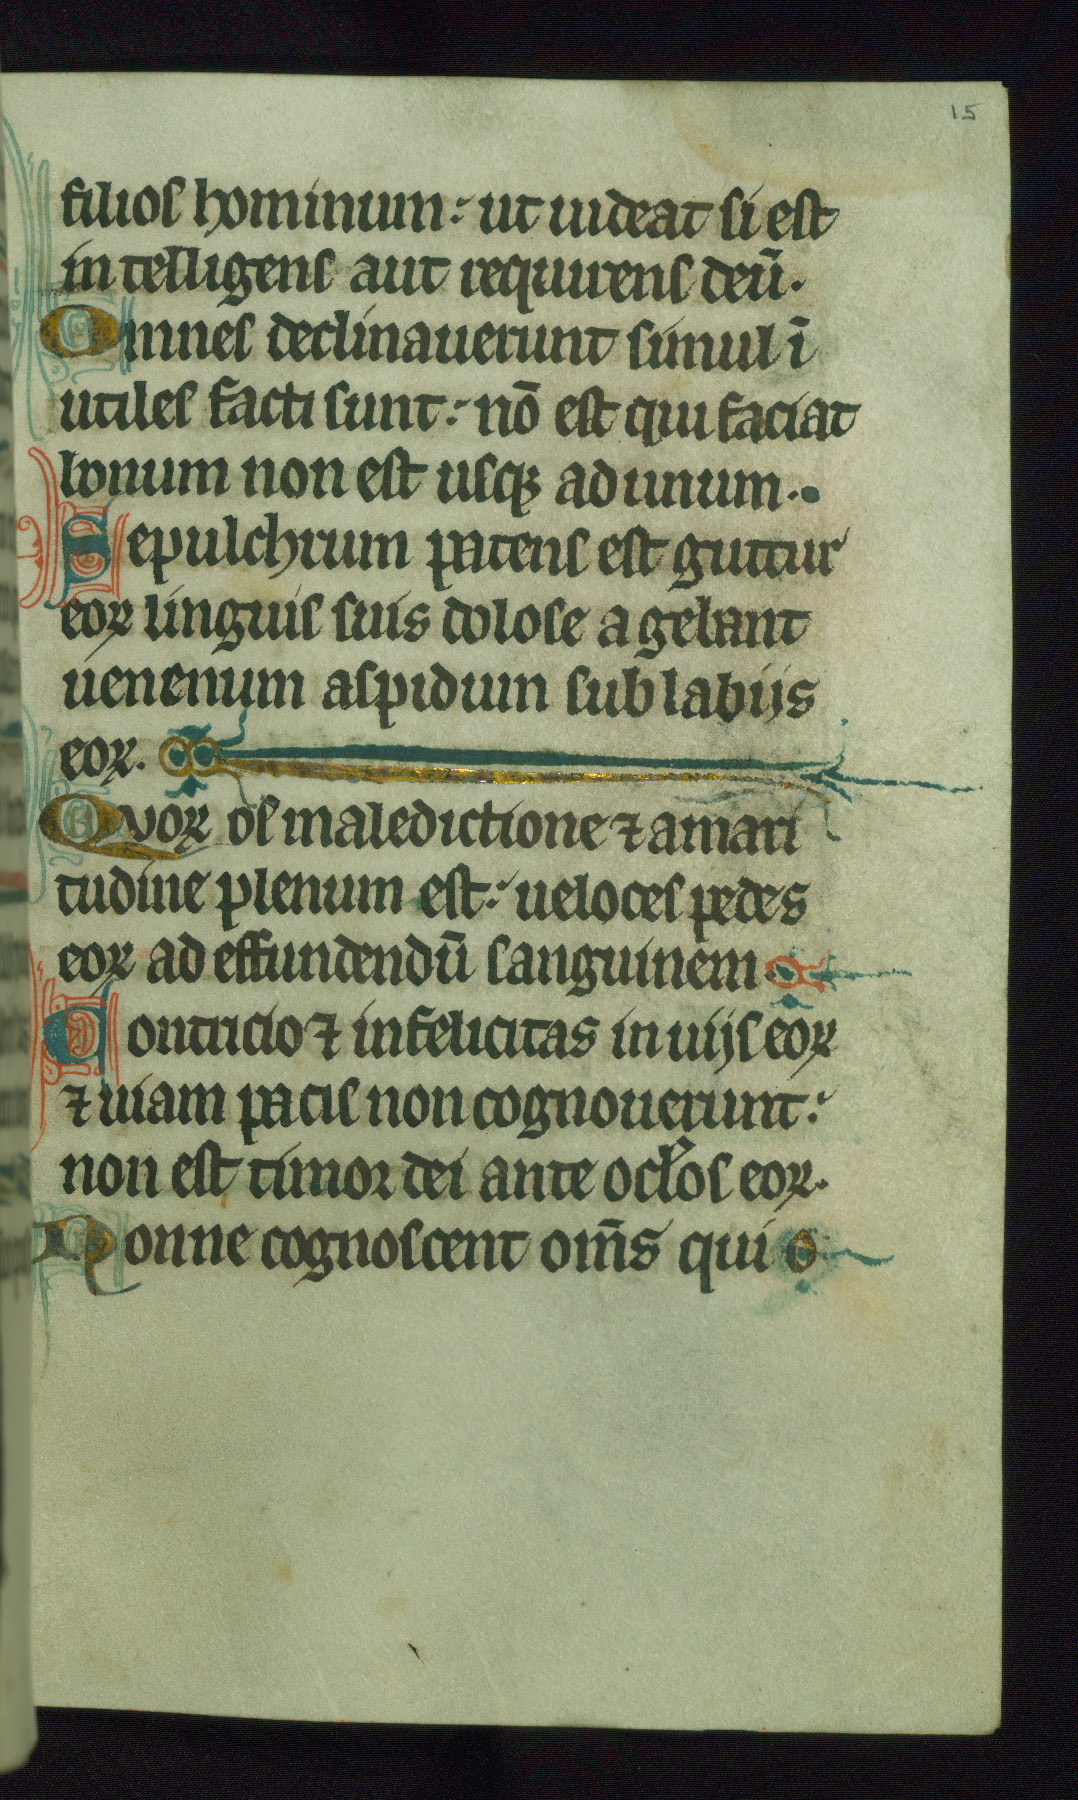 15
filios hominum: ut uideat si est
intelligens aut requirens deū.
Omnes declinauerunt simul ī
utiles facti sunt: nō est qui faciat
bonum non est usqꝫ ad unum.
Sepulchrum patens est guttur
eoꝝ linguis suis dolose agebant
uenenum aspidum sub labijs
eoꝝ.
Quoꝝ os maledictione ⁊ amari
tudine plenum est: ueloces pedes
eoꝝ ad effundendū sanguinem
Contricio ⁊ infelicitas in uijs eoꝝ
⁊ uiam pacis non cognouerunt:
non est timor dei ante ocłos eoꝝ.
Nonne cognoscent om̄s qui o